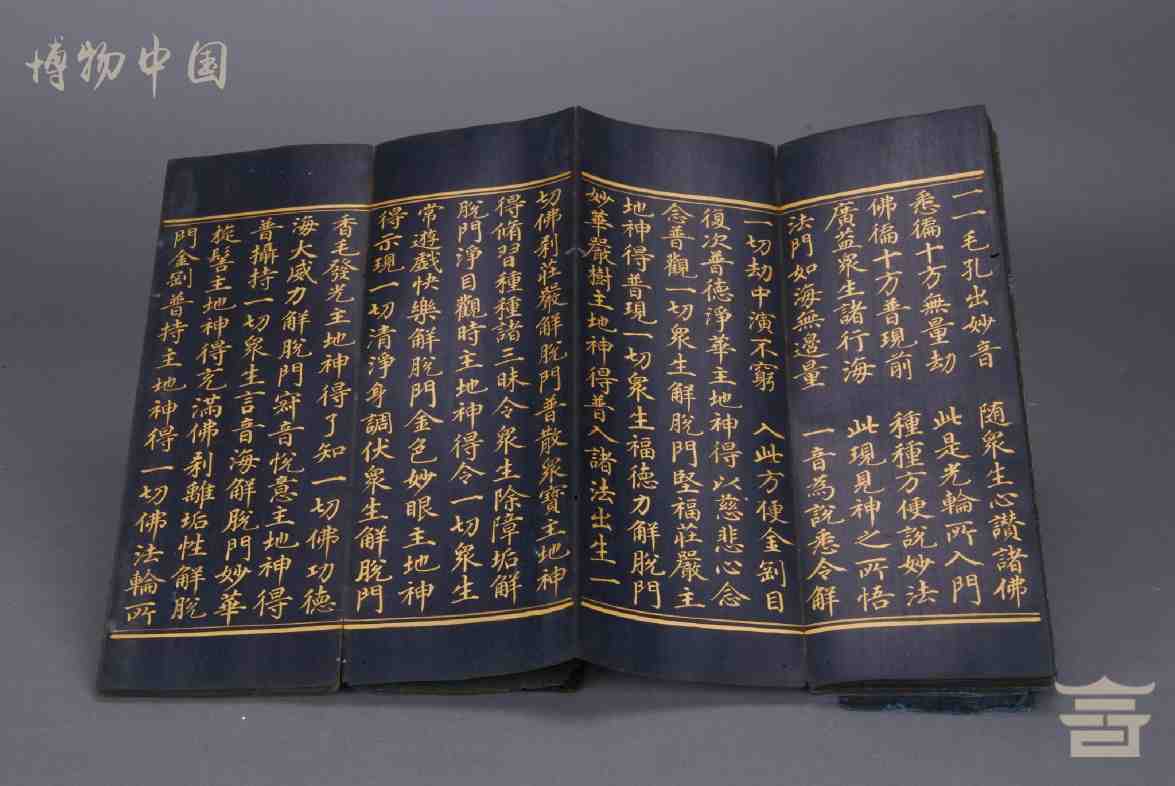 博物中国
一一毛孔出妙音　随衆生心讃諸佛
悉徧十方無量劫　此是光輪所入門
佛徧十方普現前　種種方便說妙法
廣益衆生諸行海　此現見神之所悟
法門如海無邊量　一音為說悉令解
一切劫中演不窮　入此方便金剛目
復次普德淨華主地神得以慈悲心念
念普觀一切衆生解脫門堅福莊嚴主
地神得普現一切衆生福德力解脫門
妙華嚴樹主地神得普入諸法出生一
切佛刹莊嚴解脫門普散衆寶主地神
得脩習種種諸三昧令衆生除障垢解
脫門淨目觀時主地神得令一切衆生
常遊戲快樂解脫門金色妙眼主地神
得示現一切清淨身調伏衆生解脫門
香毛發光主地神得了知一切佛功德
海大威力解脫門寂音悅意主地神得
普攝持一切衆生言音海解脫門妙華
旋髻主地神得充滿佛刹離垢性解脫
門金剛普持主地神得一切佛法輪所